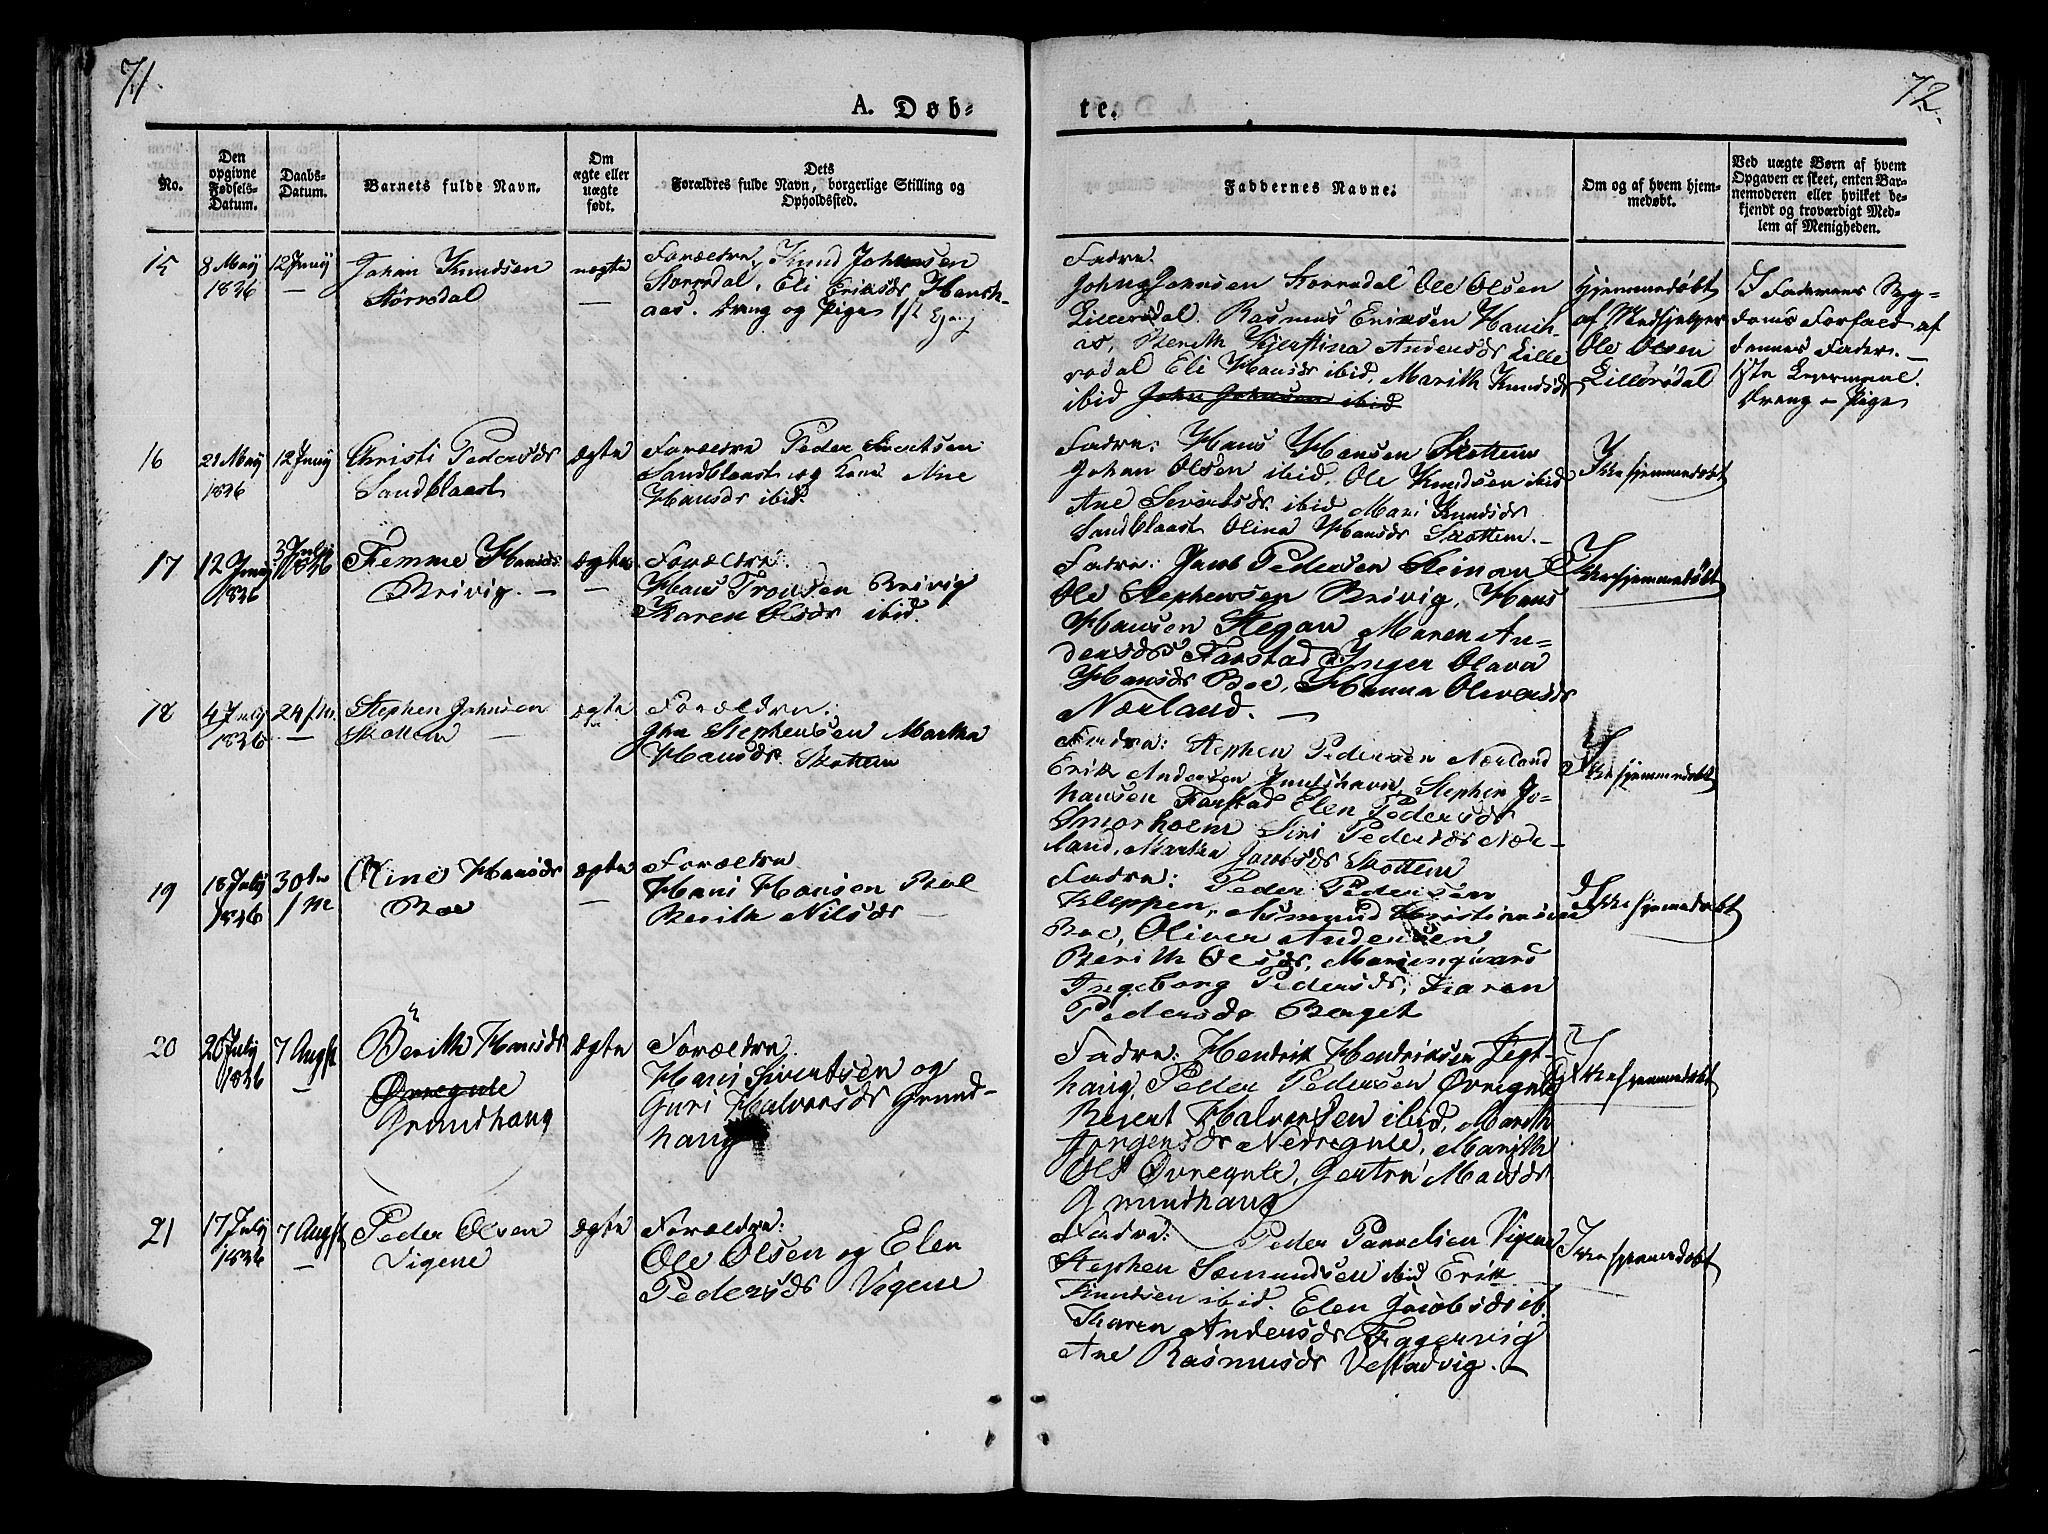 71.
72.
A. Døb-
te.
No.
Den opgivne Fødsels-Datum.
Daabs-Datum.
Barnets fulde Navn.
Om ægte eller uægte født.
Dets Forældres fulde Navn, borgerlige Stilling og Opholdssted.
Faddernes Navne.
Om og af hvem hjemmedøbt.
Ved uægte Børn af hvem Opgaven er skeet, enten Barnemoderen eller hvilket bekjendt og troværdigt Medlem af Menigheden.
15
8 May
1836
12 Juny
Johan Knudsen
Storrødal
uægte
Forældre Knud Johnsen
Storrødal, Eli Eriksdr Hansh-
aas. Dreng og Pige 1st Gang
Fadre.
John Johnsen Storrødal Ole Olsen
Lillerødal. Rasmus Eriksen Hansh-
as, Berith Kjerstina Andersdr Lille
rødal Eli Hansdr ibid, Marith Knudsdr
ibid John Johnsen ibid
Hjemmedøbt
af Medhjelper
Ole Olsen
Lillerødal
af
dennes Fader.
1ste Leiermaal.
Dreng – Pige
16
21 May
1836
12 Juny
Christi Pedersdr
Sandblaast
ægte
Forældre Peder Sivertsen
Sandblaast og Kone Ane
Hansdr ibid.
Fadre: Hans Hansen Skottem
Johan Olsen ibid, Ole Knudsen ibid
Ane Severtsdr. ibid Mari Knudsdr
Sandblaast Olina Hansdr Skottem.
Ikke hjemmedøbt
17
12 Juny
1836
3 July
1836
Femme Hansdr
Brevig.
ægte
Forældre.
Hans Tronsen Brevig
Karen Olsdr ibid.
Fadre: Jacob Pedersen
Ole Stephensen Brevig, Hans
Hansen Stegan Maren An-
dersdr Farstad Inger Olava
Hansdr Boe, Hanna Oliversdr
Nærland.
Ikke hjemmedøbt
18
4 July
1836
24
Stephen Johnsen
Skottem
ægte
Forældre.
John Stephensen Martha
Hansdr. Skottem
Fadre: Stephen Pedersen Nærland
Erik Andersen Stephen Jo-
hansen Farstad Elen Pedersdr
Smorholm Siri Pedersdr Nær-
land, Martha Jacobsdr Skottem
Ikke hjemmedøbt
19
18 July
1836
30te
Oline Hansdr
Boe
ægte
Forældre
Hans Hansen Boe
Berith Nilsdr
Fadre: Peder Pedersen
Kleppen, Asmund Kristiansen
Boe, Oliver Andersen
Berith Olsdr,
Ingeborg Pedersdr, Karen
Pedersdr Berget
Ikke hjemmedøbt
20
20 July
1836
7 Augst
Berith Hansdr
Øvregule
Grundhaug
ægte
Forældre
Hans Sivertsen og
Guri Halvorsdr Grund-
haug
Fadre: Hendrik Hendriksen Tegt-
haug, Peder Pedersen Øvregule
Halvorsen ibid, Marith
Jørgensdr Nedregule, Marith
Olsd Øvregule, Madsdr
Grundhaug
Ikke hjemmedøbt
21
17 July
1836
7 Augst
Peder Olsen
Vigene
ægte
Forældre:
Ole Olsen og Elen
Pedersdr Vigene
Fadre: Peder Vigene
Stephen Sæmundsen ibid Erik
Knudsen ibid. Elen Jacobsdr ib.
Karen Andersdr Faggervig
Ane Rasmusdr Vestadvig.
Ikke hjemmedøbt